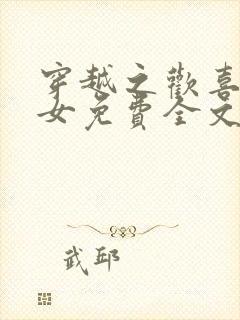 穿越之歡喜
女免費全文
武邱